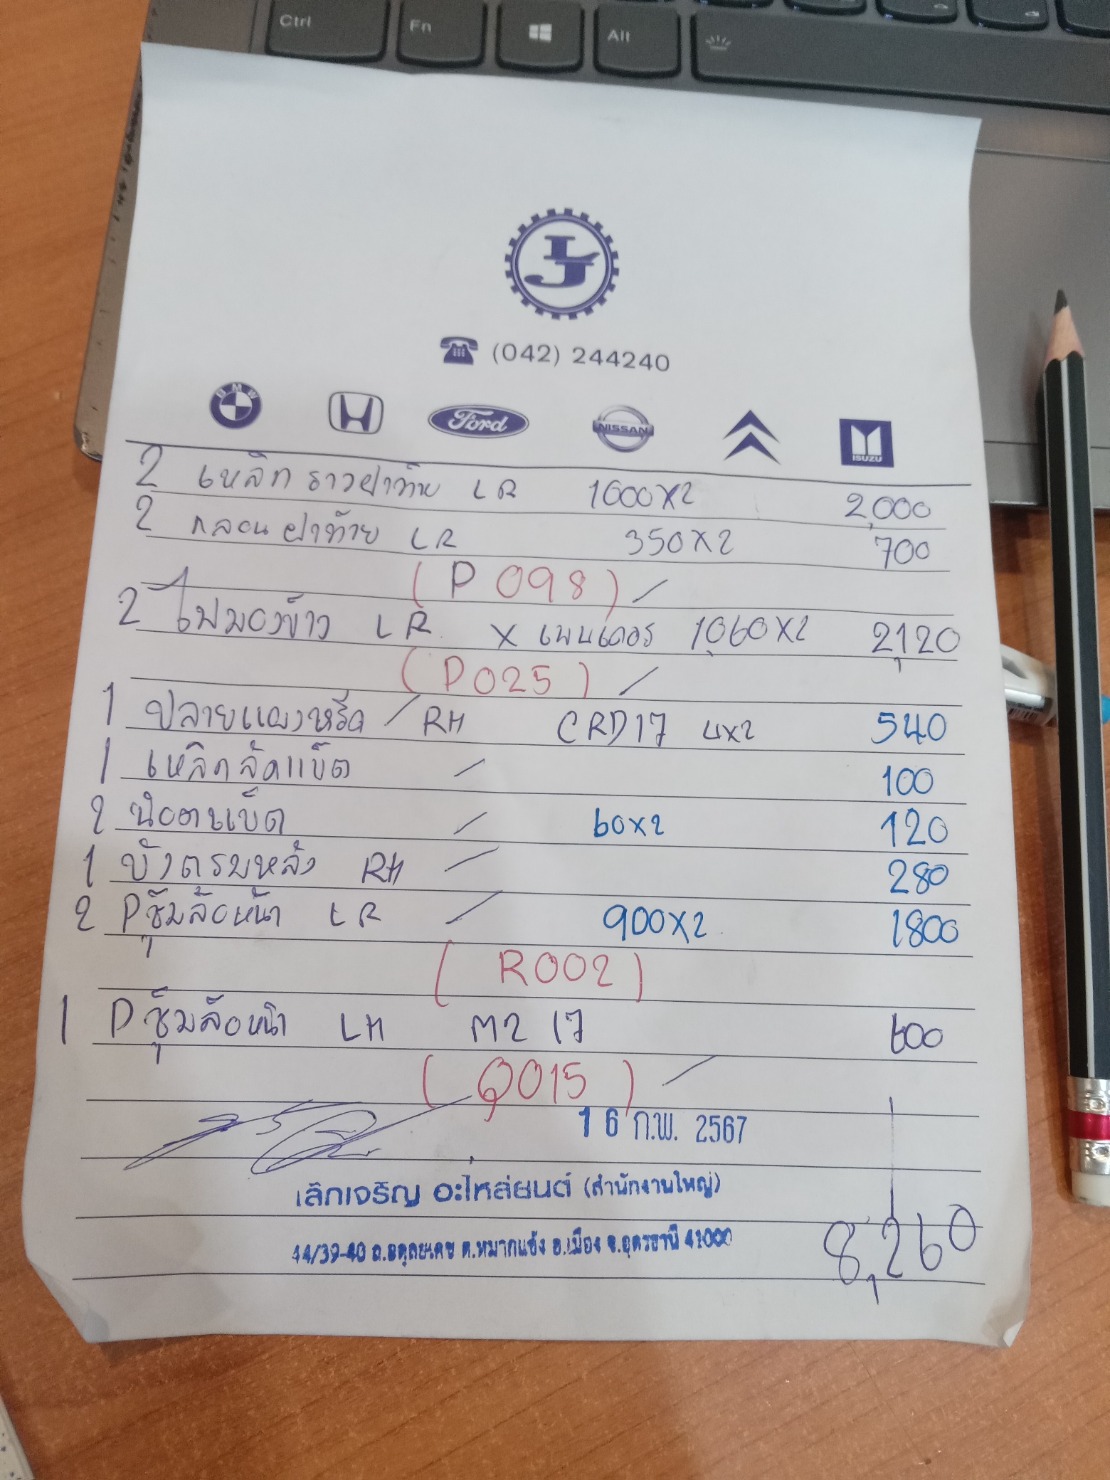 Ctrl Fn Alt
(042) 244240
BMW H Ford NISSAN ISUZU
2 เหล็กราวฝาท้าย LR 1000x2 2,000
2 กลอนฝาท้าย LR 350x2 700
(P098) /
2 ไฟมองข้าง LR x เพนเดอร์ 1,060x2 2,120
(P025) /
1 ปลายแผงหรีด / RH CRD17 4x2 540
1 เหล็กลัดแบ็ต / 100
2 น๊อตแบ็ต / 60x2 120
1 บังตรมหลัง RH / 280
2 Pซุ้มล้อหน้า LR / 900x2 1800
(R002)
1 Pซุ้มล้อหน้า LH M2 17 600
(Q015) /
16 ก.พ. 2567
เล็กเจริญ อะไหล่ยนต์ (สำนักงานใหญ่)
44/39-40 ถ.อดุลยเดช ต.หมากแข้ง อ.เมือง จ.อุดรธานี 41000
8,260